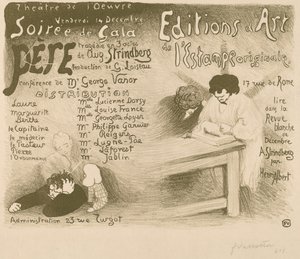 Théatre de l'Oeuvre
Vendredi 14 Décembre
Soirée de Gala
PÈRE
tragédie en 3 actes
de Aug Strindberg
traduction de G. Loiseau
conférence de Mr George Vanor
DISTRIBUTION
Laura Mme Lucienne Dorsy
Marguerite Mme Louise France
Berthe Mme Georgette Loyer
le Capitaine Mr Philippe Garnier
le médecin Mr
le Pasteur Mr Lugné-Poe
Pierre Mr
l'Ordonnance Mr Jablin
Administration 23 rue Turgot
Editions d'Art
de l'Estampe originale
17 rue de Rome
lire
dans la
Revue
Blanche
de
Décembre
A. Strindberg
par
Henri Albert